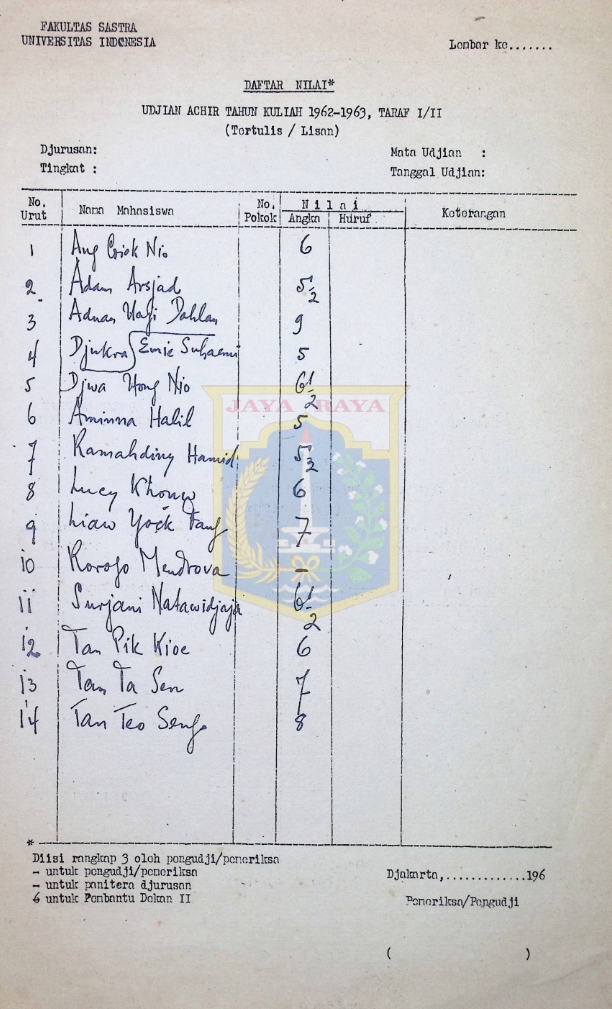 FAKULTAS SASTRA
UNIVERSITAS INDONESIA
Lembar ke.......
DAFTAR NILAI*
UDJIAN ACHIR TAHUN KULIAH 1962-1963, TARAF I/II
(Tertulis / Lisan)
Djurusan:
Mata Udjian :
Tingkat :
Tanggal Udjian:
No. Urut Nama Mahasiswa No. Pokok Nilai Angka Huruf Keterangan
1 Ang Giok Nio 6
2. Adam Arsjad 5½
3 Adnan Dahlan 9
4 Djukra Emie Suhaemi 5
5 Djwa Hong Nio 6½
6 Aminna Halil 5
7 Ramahding Hamid. 5½
8 Lucy Khouw 6
9 Liaw Yock Fang 7
10 Rorogo Mendrova -
11 Surjani Natawidjaja 6½
12 Tan Pik Kioe 6
13 Tan Ta Sen 7
14 Tan Teo Seng 8
JAYA RAYA
*
Diisi rangkap 3 oleh pengudji/pemeriksa
- untuk pengudji/pemeriksa
- untuk panitera djurusan
6 untuk Pembantu Dekan II
Djakarta,.............196
Pemeriksa/Pengudji
( )